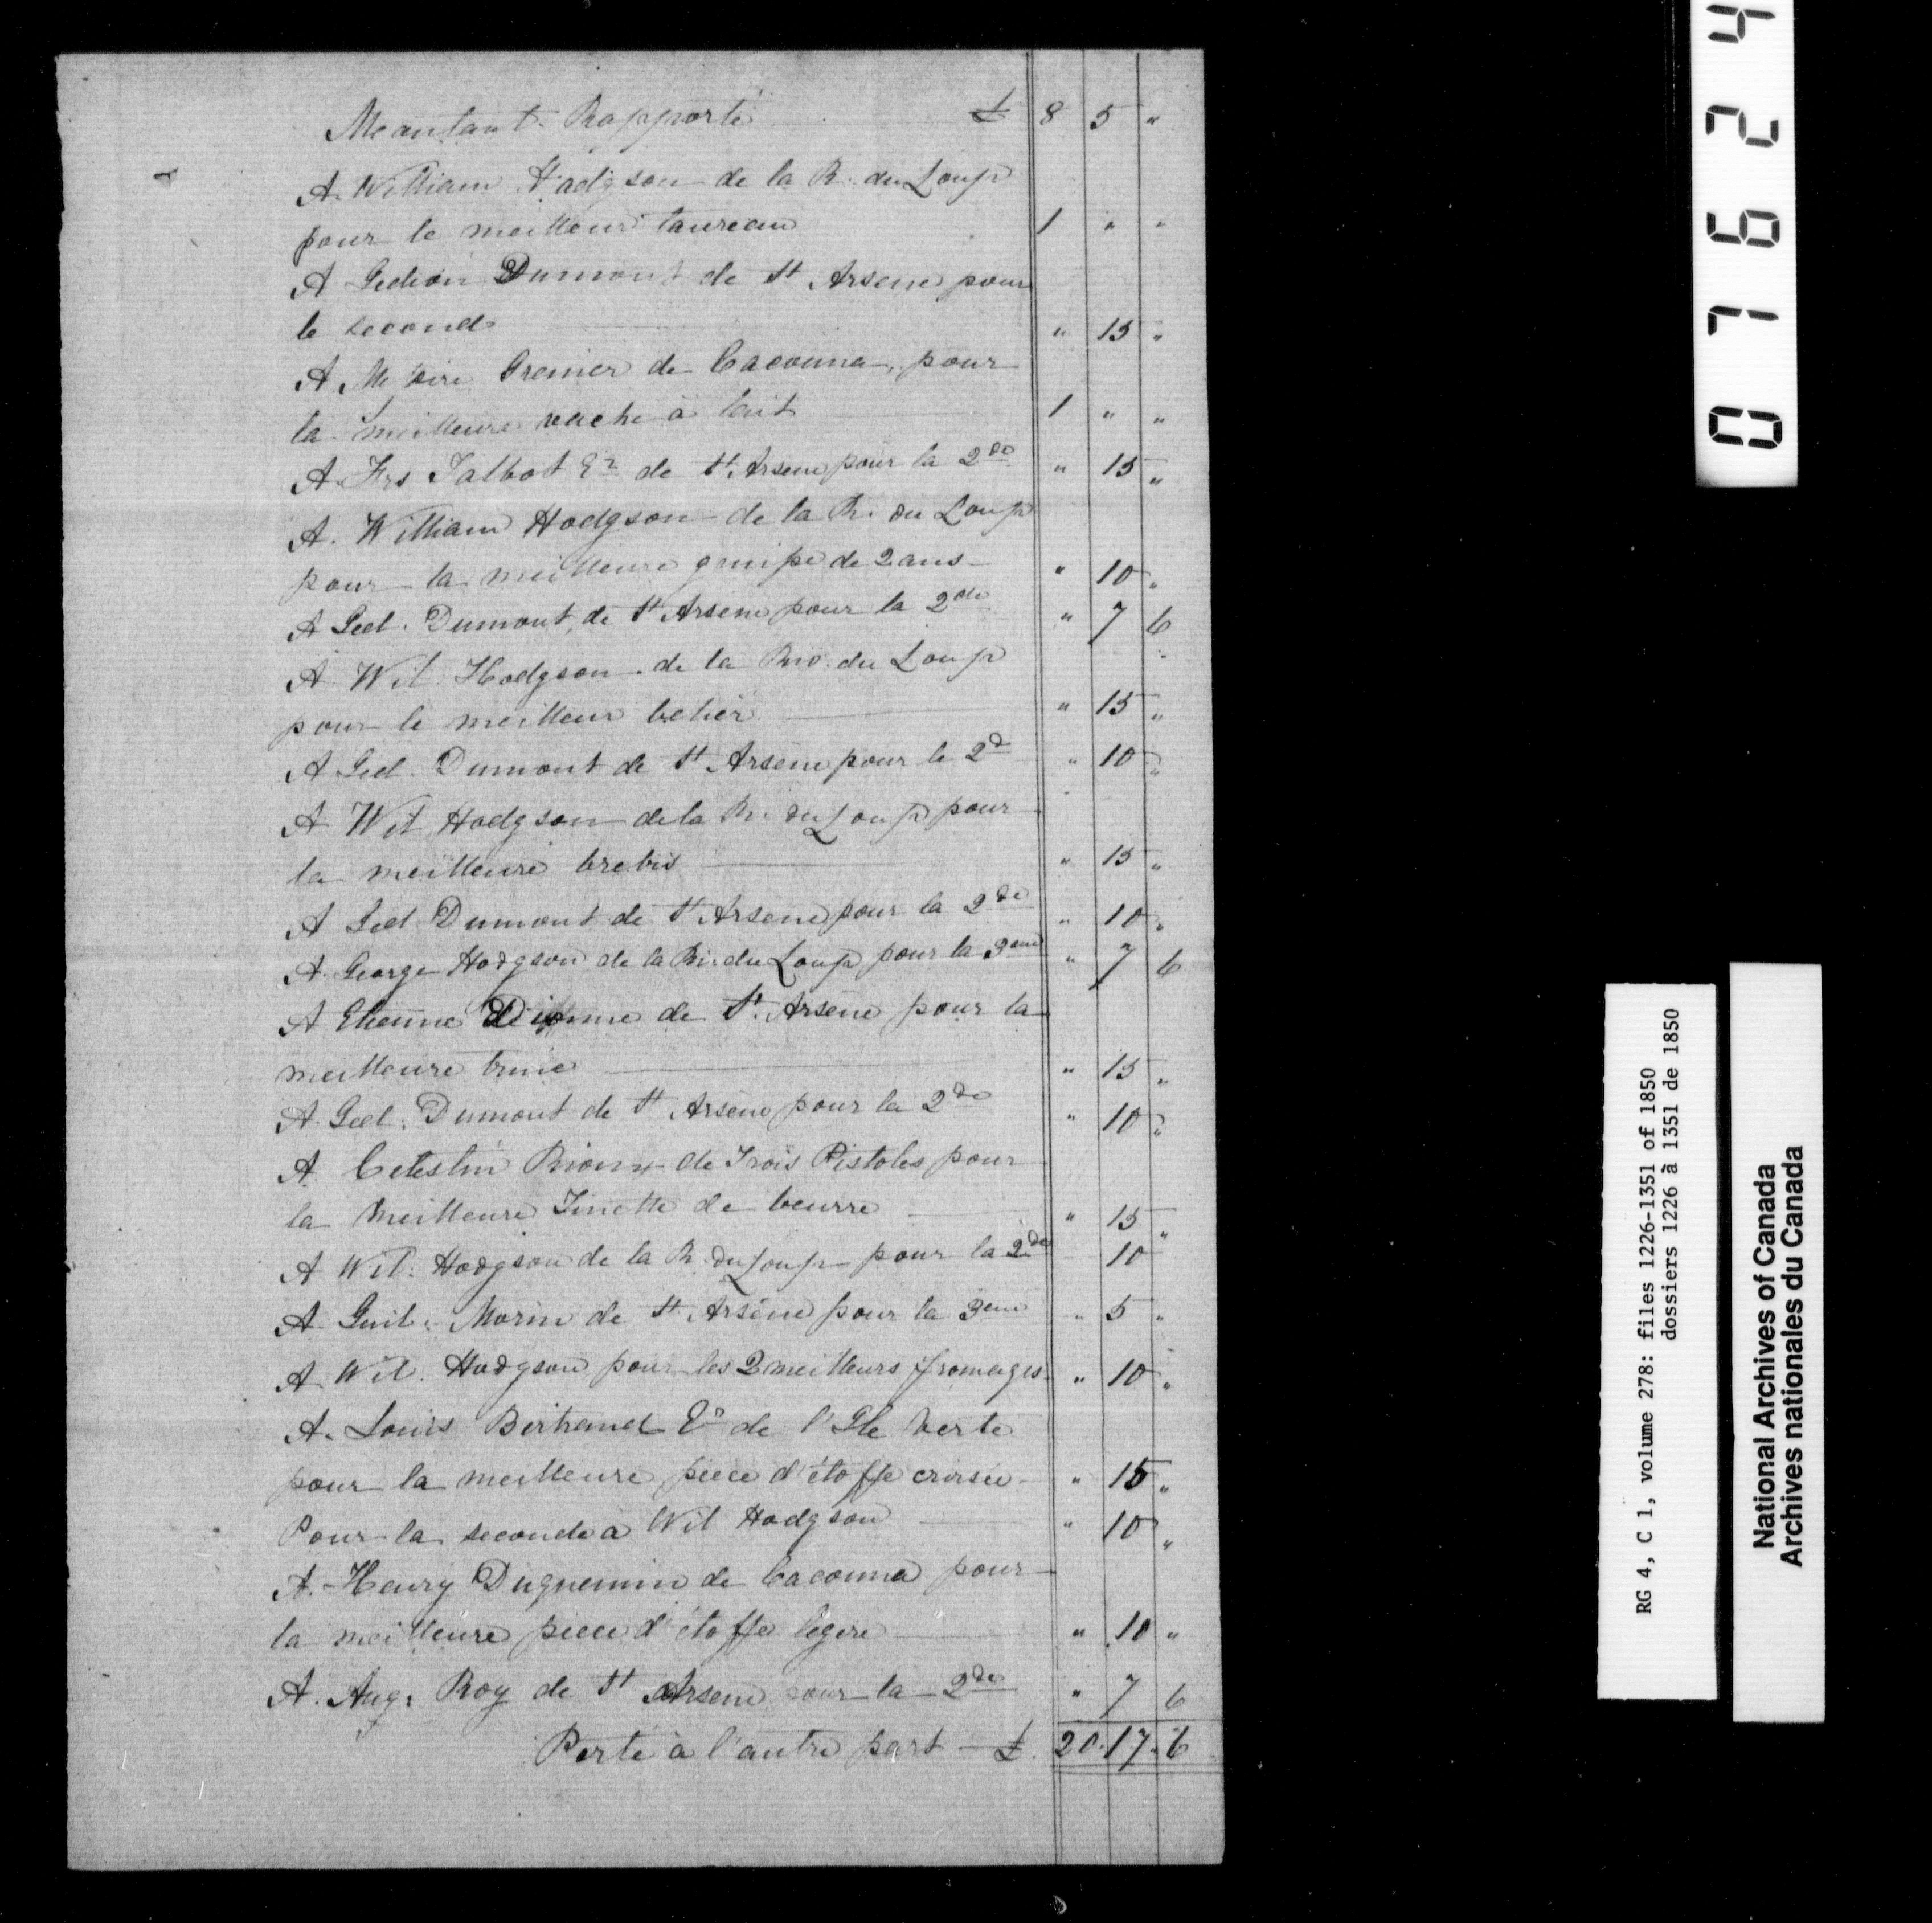 Meantant Rapporté £ 8 5 "
A. William Hadgson de la R. du Loup
pour le meilleur taureau 1 " "
A Gedeon Dumont de St Arsene pour
le second " 15 "
A Grenier de Cacouna, pour
la meilleure vache à lait 1 " "
A. Frs Talbot Er de St. Arsene pour la 2de " 15 "
A. William Hodgson de la R. du Loup
pour la meilleure genipe de 2 ans " 10 "
A Ged. Dumont, de St Arsene pour la 2de " 7 6
A Wil. Hodgson de la Riv. du Loup
pour le meilleur belier " 15 "
A Ged. Dumont de St Arsene pour le 2d " 10 "
A Wil Hodgson de la R. du Loup pour
la meilleure brebis " 15 "
A Ged Dumont de St Arsene pour la 2de " 10 "
A. George Hodgson de la Ri. du Loup pour la 3eme " 7 6
A Etienne Dionne de St. Arsene pour la
meilleure truie " 15 "
A. Ged. Dumont de St Arsene pour la 2de " 10 "
A. Celestin Rioux de Trois Pistoles pour
la Meilleure Tinette de beurre " 15 "
A Wil. Hodgson de la R. du Loup pour la 2de 10
A Guil. Morin de St Arsène pour la 3eme " 5 "
A Wil. Hodgson pour les 2 meilleurs fromages " 10 "
A. Louis Bertrand Er de l'Ile Verte
pour la meilleure piece d'étoffe croisée " 15 "
Pour la seconde a Wil Hodgson " 10 "
A. Henry Duquemin de Cacouna pour
la meilleure piece d'étoffe légere " 10 "
A. Aug. Roy de St Arsene pour la 2de " 7 6
Porté à l'autre part £ 20. 17. 6
07624
RG 4, C 1, volume 278: files 1226-1351 of 1850
dossiers 1226 à 1351 de 1850
National Archives of Canada
Archives nationales du Canada